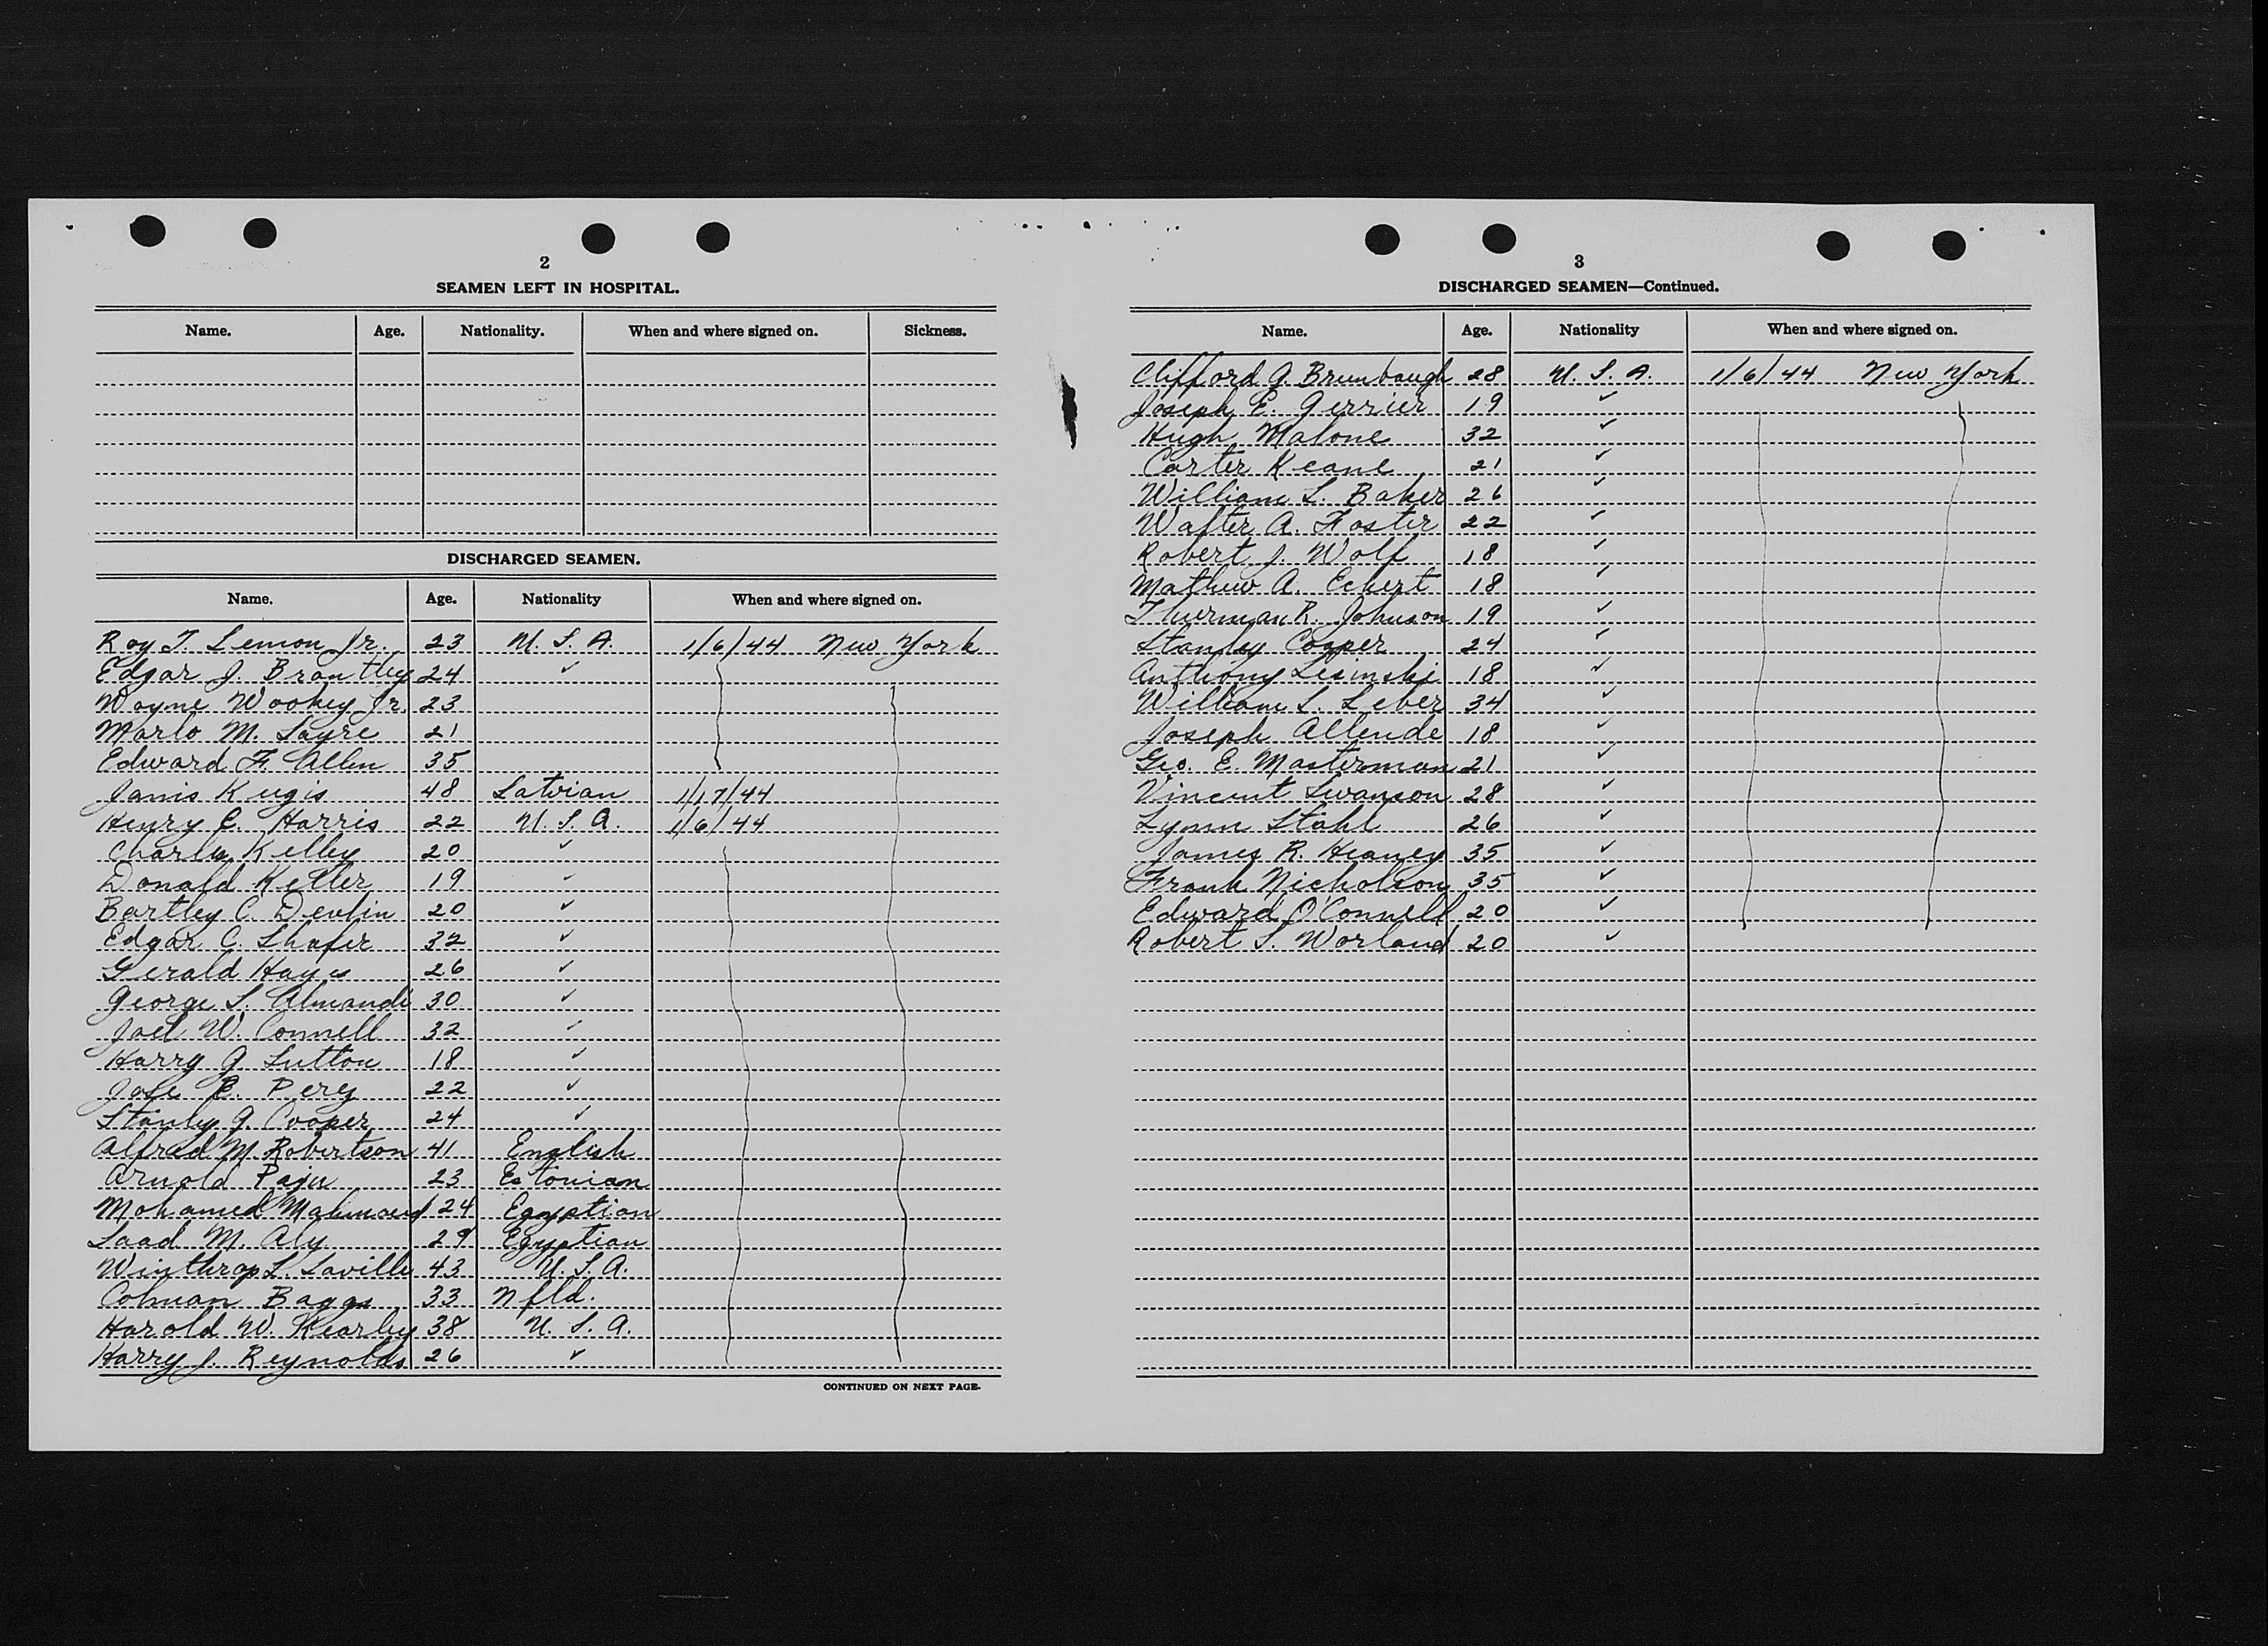 2
SEAMEN LEFT IN HOSPITAL.
Name. Age. Nationality. When and where signed on. Sickness.
DISCHARGED SEAMEN.
Name. Age. Nationality When and where signed on.
Roy T. Lemon Jr. 23 U. S. A. 1/6/44 New York
Edgar J. Brantley 24 ✓
Wayne Wookey Jr. 23
Marlo M. Sayre 21
Edward F. Allen 35
Janis Kugis 48 Latvian 1/17/44
Henry C. Harris 22 U. S. A. 1/6/44
Charles Kelley 20 ✓
Donald Keller 19 ✓
Bartley C. Devlin 20 ✓
Edgar C. Shafer 32 ✓
Gerald Hayes 26 ✓
George S. Almandi 30 ✓
Joel W. Connell 32 ✓
Harry G. Sutton 18 ✓
Jose E. Perez 22 ✓
Stanley J. Cooper 24 ✓
Alfred M. Robertson 41 English
Arnold Paju 23 Estonian
Mohamed Mahmoud 24 Egyptian
Saad M. Aly 29 Egyptian
Winthrop L. Saville 43 U. S. A.
Colman Baggs 33 Nfld.
Harold W. Kearley 38 U. S. A.
Harry J. Reynolds 26 ✓
CONTINUED ON NEXT PAGE.
3
DISCHARGED SEAMEN—Continued.
Name. Age. Nationality When and where signed on.
Clifford G. Brumbaugh 28 U. S. A. 1/6/44 New York
Joseph E. Gerrier 19 ✓
Hugh Malone 32 ✓
Carter Keane 21 ✓
William L. Baker 26 ✓
Walter A. Foster 22 ✓
Robert J. Wolf 18 ✓
Mathew A. Eckert 18 ✓
Thurman R. Johnson 19 ✓
Stanley Cooper 24 ✓
Anthony Lesinski 18 ✓
William L. Leber 34 ✓
Joseph Allende 18 ✓
Geo. E. Masterman 21 ✓
Vincent Swanson 28 ✓
Lynn Stahl 26 ✓
James R. Heaney 35 ✓
Frank Nicholson 35 ✓
Edward O'Connell 20 ✓
Robert S. Worland 20 ✓